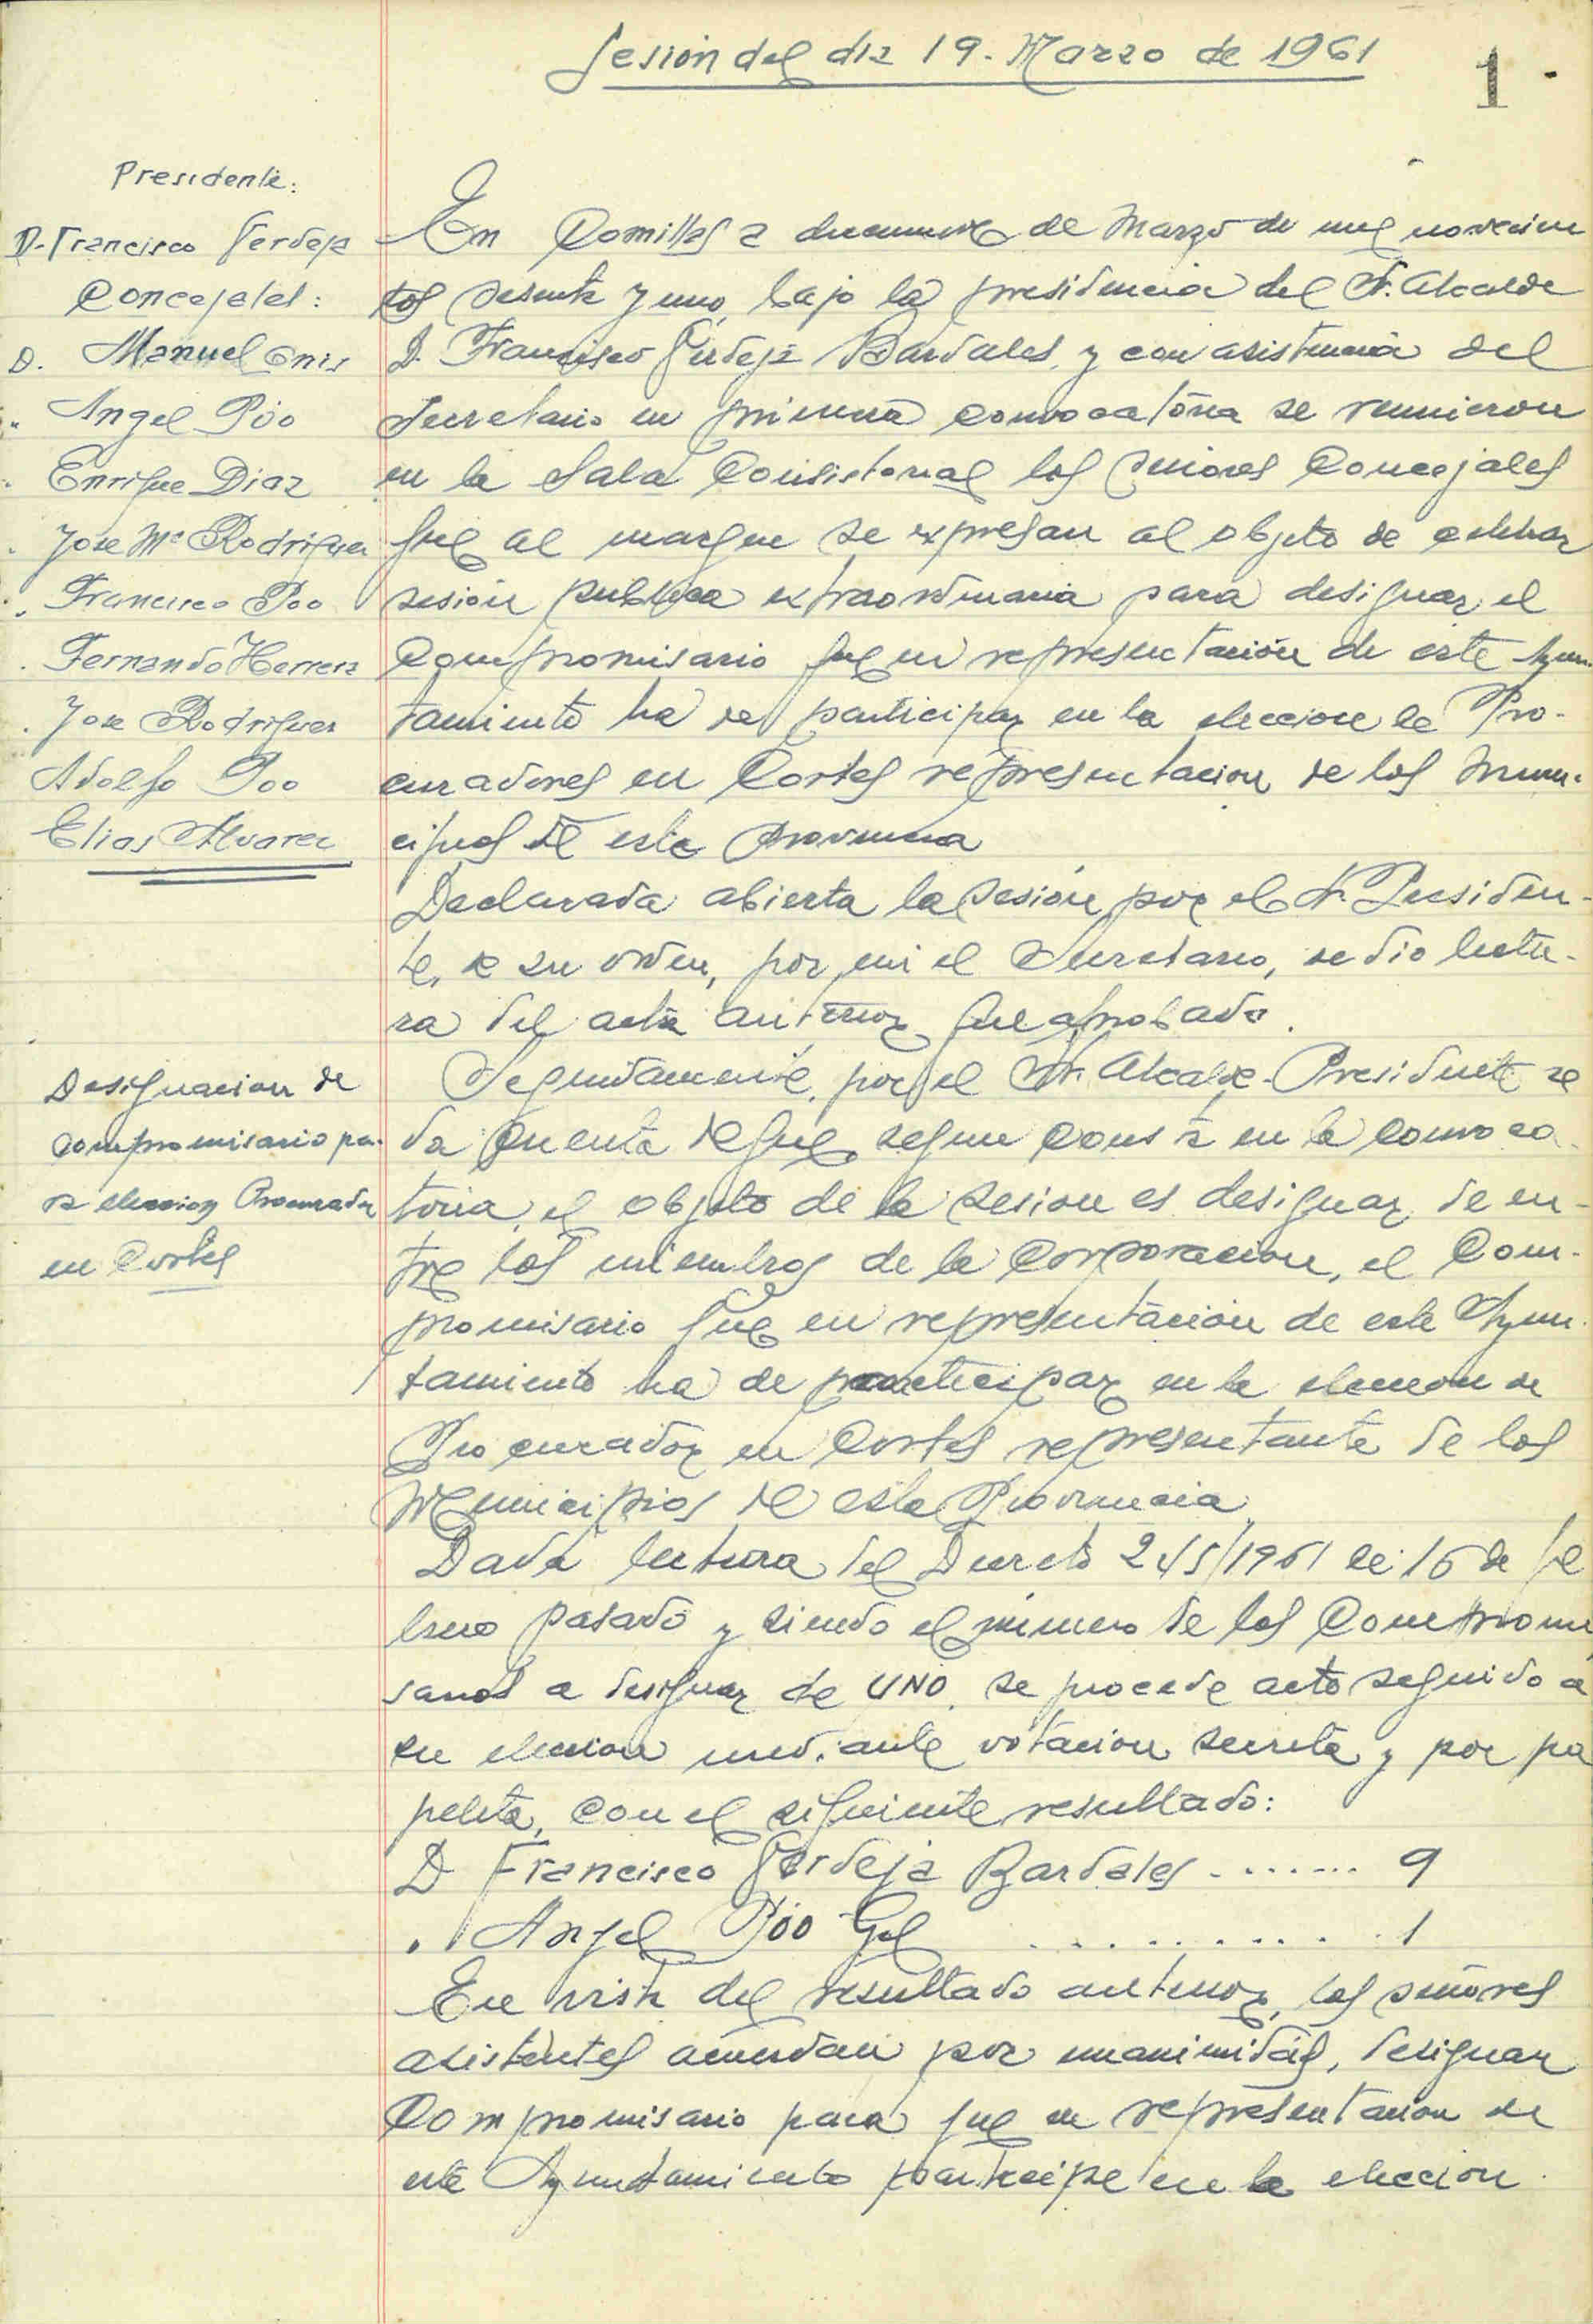 Sesión del dia 19. Marzo de 1961
1
Presidente:
D. Francisco Gerdeja
Concejales:
D. Manuel Enis
" Angel Póo
" Enrique Diaz
" Jose Mª Rodriguez
" Francisco Poo
" Fernando Herrera
" Jose Rodriguez
Adolfo Poo
Elias Alvarez
En Comillas a diecinueve de Marzo de mil novecien
tos sesenta y uno, bajo la presidencia del Sr. Alcalde
D. Francisco Gerdeja Bardales, y con asistencia del
Secretario en primera convocatoria se reunieron
en la Sala Consistorial los señores Concejales
que al margen se expresan al objeto de celebrar
sesión publica extraordinaria para designar el
Compromisario que en representación de este Ayun-
tamiento ha de participar en la eleccion de Pro-
curadores en Cortes representacion de los Muni-
cipios de esta Provincia
Declarada abierta la sesión por el Sr. Presiden-
te, de su orden, por mi el Secretario, se dio lectu-
ra del acta anterior que aprobada.
Designacion de
compromisario pa-
ra eleccion Procurador
en Cortes
Seguidamente, por el Sr. Alcalde-Presidente se
da cuenta de que, segun consta en la convoca-
toria, el objeto de la sesion es designar, de en-
tre los miembros de la Corporacion, el Com-
promisario que en representación de este Ayun-
tamiento ha de participar en la eleccion de
Procurador en Cortes representante de los
Municipios de esta Provincia.
Dada lectura del Decreto 245/1961 de 16 de fe
brero pasado y siendo el número de los Compromi
sarios a designar de UNO, se procede acto seguido a
su eleccion mediante votacion secreta y por pa
peleta, con el siguiente resultado:
D Francisco Gerdeja Bardales ....... 9
" Angel Póo Gil .......... 1
En vista del resultado anterior, los señores
asistentes acuerdan por unanimidad, designar
Compromisario para que en representacion de
este Ayuntamiento participe en la eleccion